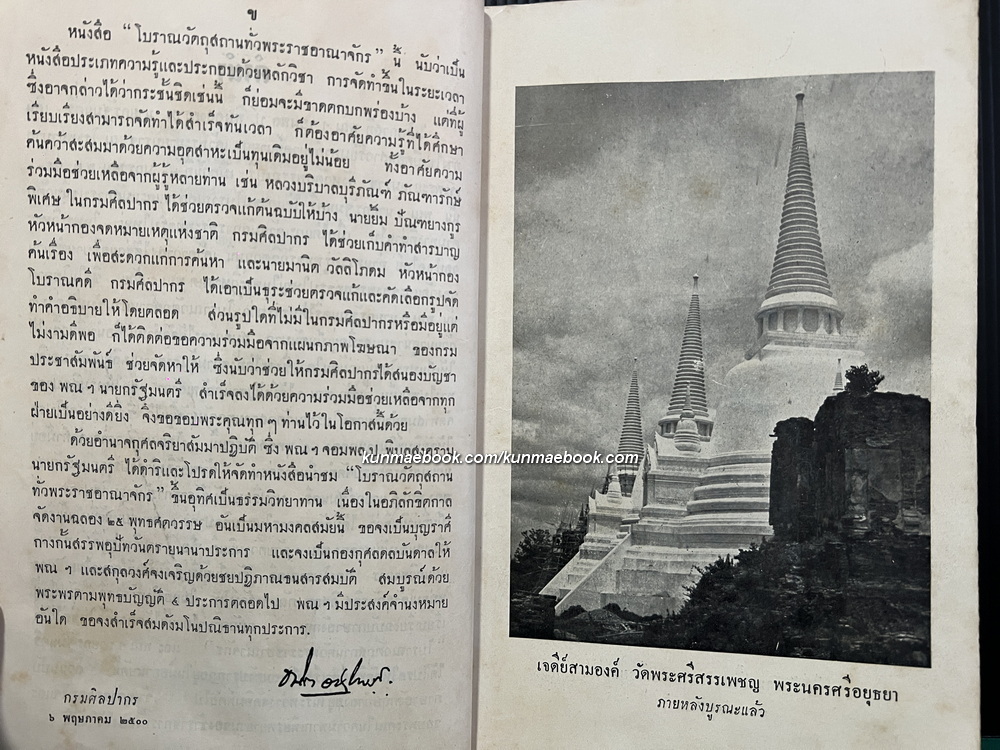 ข
หนังสือ “โบราณวัตถุสถานทั่วพระราชอาณาจักร” นี้ นับว่าเป็น
หนังสือประเภทความรู้และประกอบด้วยหลักวิชา การจัดทำขึ้นในระยะเวลา
ซึ่งอาจกล่าวได้ว่ากระชั้นชิดเช่นนี้ ก็ย่อมจะมีขาดตกบกพร่องบ้าง แต่ที่ผู้
เรียบเรียงสามารถจัดทำได้สำเร็จทันเวลา ก็ต้องอาศัยความรู้ที่ได้ศึกษา
ค้นคว้าสะสมมาด้วยความอุตสาหะเป็นทุนเดิมอยู่ไม่น้อย ทั้งอาศัยความ
ร่วมมือช่วยเหลือจากผู้รู้หลายท่าน เช่น หลวงบริบาลบุรีภัณฑ์ ภัณฑารักษ์
พิเศษ ในกรมศิลปากร ได้ช่วยตรวจแก้ต้นฉบับให้บ้าง นายยิ้ม ปัณฑยางกูร
หัวหน้ากองจดหมายเหตุแห่งชาติ กรมศิลปากร ได้ช่วยเก็บคำทำสารบาญ
ค้นเรื่อง เพื่อสะดวกแก่การค้นหา และนายมานิต วัลลิโภดม หัวหน้ากอง
โบราณคดี กรมศิลปากร ได้เอาเป็นธุระช่วยตรวจแก้และคัดเลือกรูปจัด
ทำคำอธิบายให้โดยตลอด ส่วนรูปใดที่ไม่มีในกรมศิลปากรหรือมีอยู่แต่
ไม่งามดีพอ ก็ได้ติดต่อขอความร่วมมือจากแผนกภาพโฆษณา ของกรม
ประชาสัมพันธ์ ช่วยจัดหาให้ ซึ่งนับว่าช่วยให้กรมศิลปากรได้สนองบัญชา
ของ พณฯ นายกรัฐมนตรี สำเร็จลงได้ด้วยความร่วมมือช่วยเหลือจากทุก
ฝ่ายเป็นอย่างดียิ่ง จึงขอขอบพระคุณทุก ๆ ท่านไว้ในโอกาสนี้ด้วย
ด้วยอำนาจกุศลจริยาสัมมาปฏิบัติ ซึ่ง พณฯ จอมพล ป. พิบูลสงคราม
kunmaebook.com/kunmaebook.com
นายกรัฐมนตรี ได้ดำริและโปรดให้จัดทำหนังสือนำชม “โบราณวัตถุสถาน
ทั่วพระราชอาณาจักร” ขึ้นอุทิศเป็นธรรมวิทยาทาน เนื่องในอภิลักขิตกาล
จัดงานฉลอง ๒๕ พุทธศตวรรษ อันเป็นมหามงคลสมัยนี้ ขอจงเป็นบุญราศี
กางกั้นสรรพอุปัทวันตรายนานาประการ และจงเป็นกองกุศลดลบันดาลให้
พณฯ และสกุลวงศ์จงเจริญด้วยชยปฏิภาณธนสารสมบัติ สมบูรณ์ด้วย
พระพรตามพุทธบัญญัติ ๔ ประการตลอดไป พณฯ มีประสงค์จำนงหมาย
อันใด ขอจงสำเร็จสมดังมโนปณิธานทุกประการ.
กรมศิลปากร
๖ พฤษภาคม ๒๕๐๐
เจดีย์สามองค์ วัดพระศรีสรรเพชญ พระนครศรีอยุธยา
ภายหลังบูรณะแล้ว